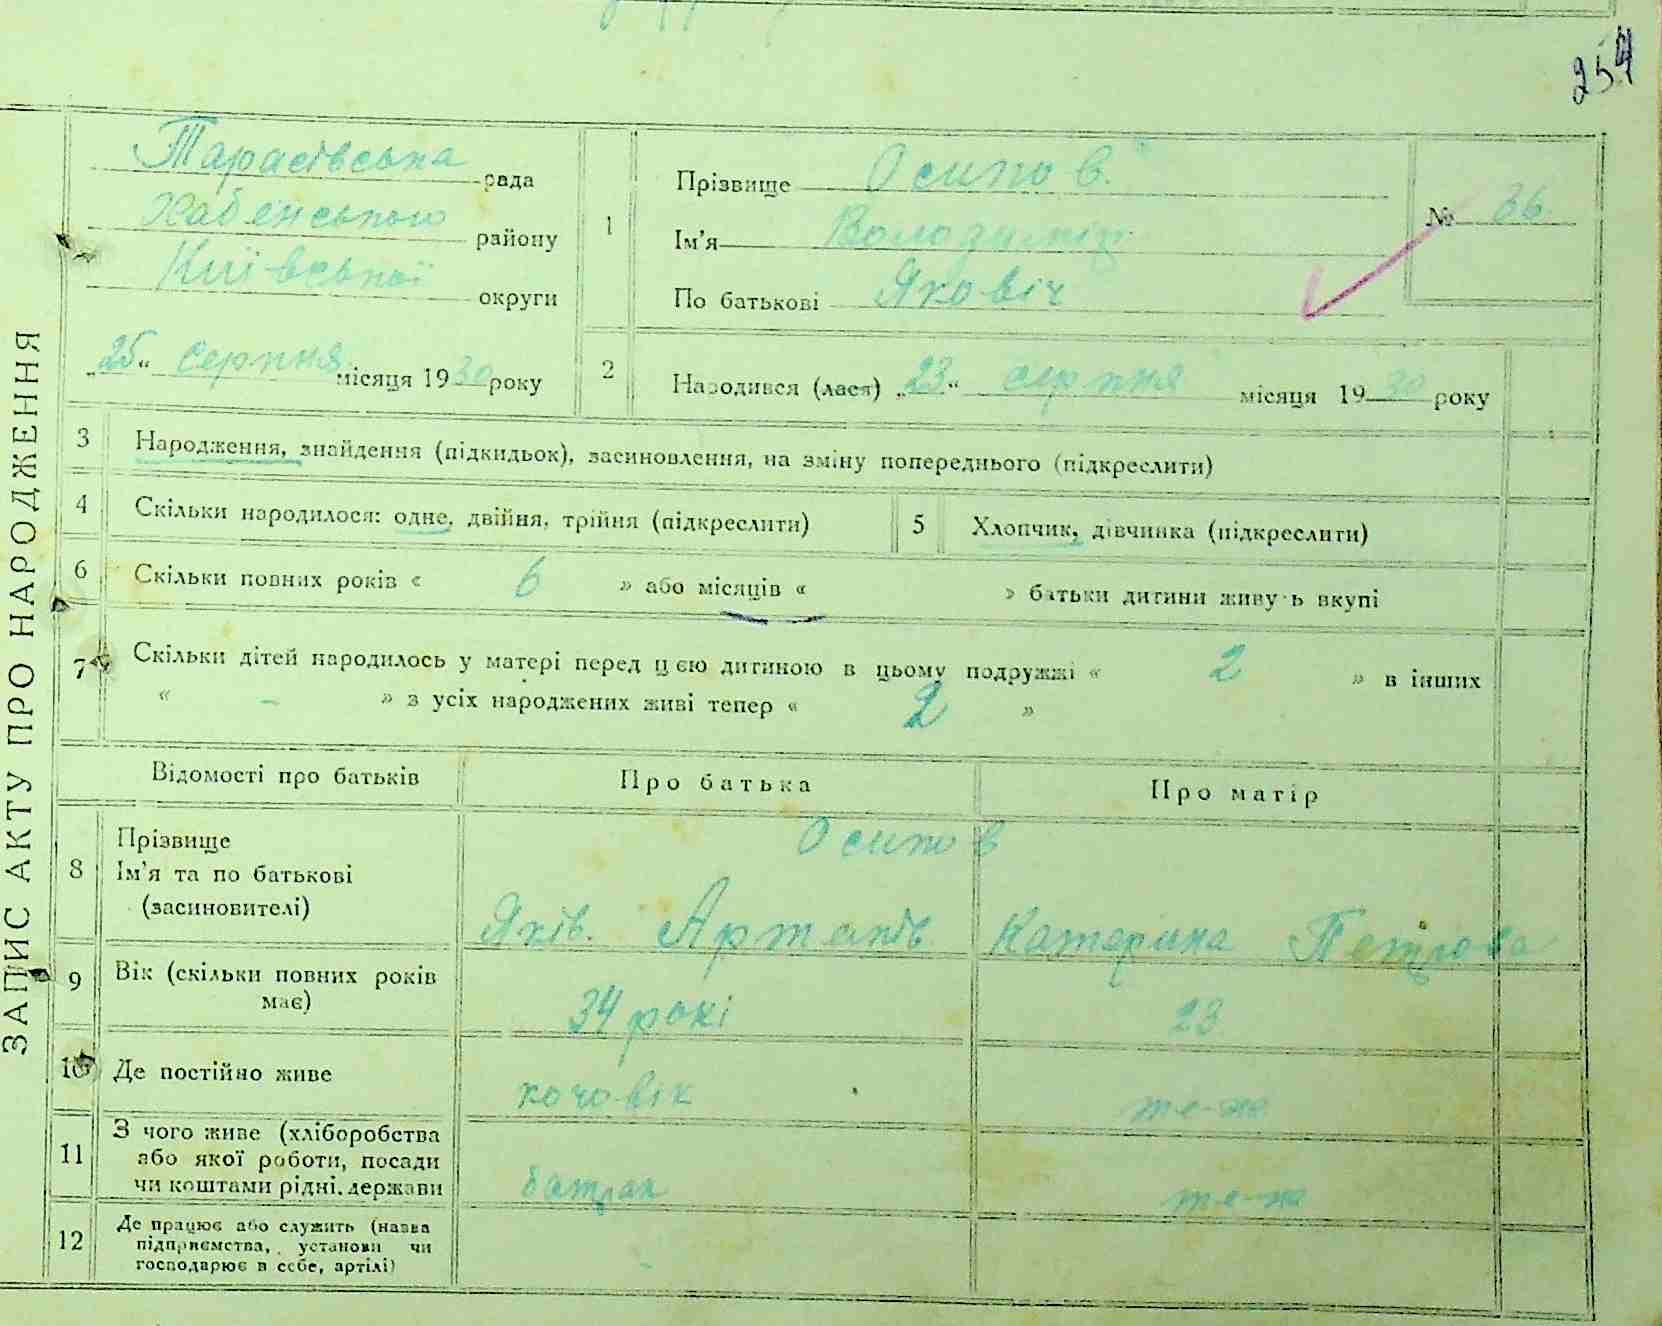 254
ЗАПИС АКТУ ПРО НАРОДЖЕННЯ
Тарасівська рада
Хабенського району
Київської округи
„25“ серпня місяця 1930 року
1
Прізвище Осипов
Ім'я Володимір
По батькові Яковіч
№ 36
2
Народився (лася) „23“ серпня місяця 1930 року
3 Народження, знайдення (підкидьок), засиновлення, на зміну попереднього (підкреслити)
4 Скільки народилося: одне, двійня, трійня (підкреслити)
5 Хлопчик, дівчинка (підкреслити)
6 Скільки повних років « 6 » або місяців « » батьки дитини живуть вкупі
7 Скільки дітей народилось у матері перед цією дитиною в цьому подружжі « 2 » в інших
« - » з усіх народжених живі тепер « 2 »
Відомості про батьків Про батька Про матір
8 Прізвище
Ім'я та по батькові
(засиновителі)
Осипов
Яків Артемів Катеріна Петрова
9 Вік (скільки повних років
має)
34 рокі 23
10 Де постійно живе кочовік те-же
11 З чого живе (хліборобства
або якої роботи, посади
чи коштами рідні, держави
батрак те-же
12 Де працює або служить (назва
підприємства, установи чи
господарює в себе, артілі)